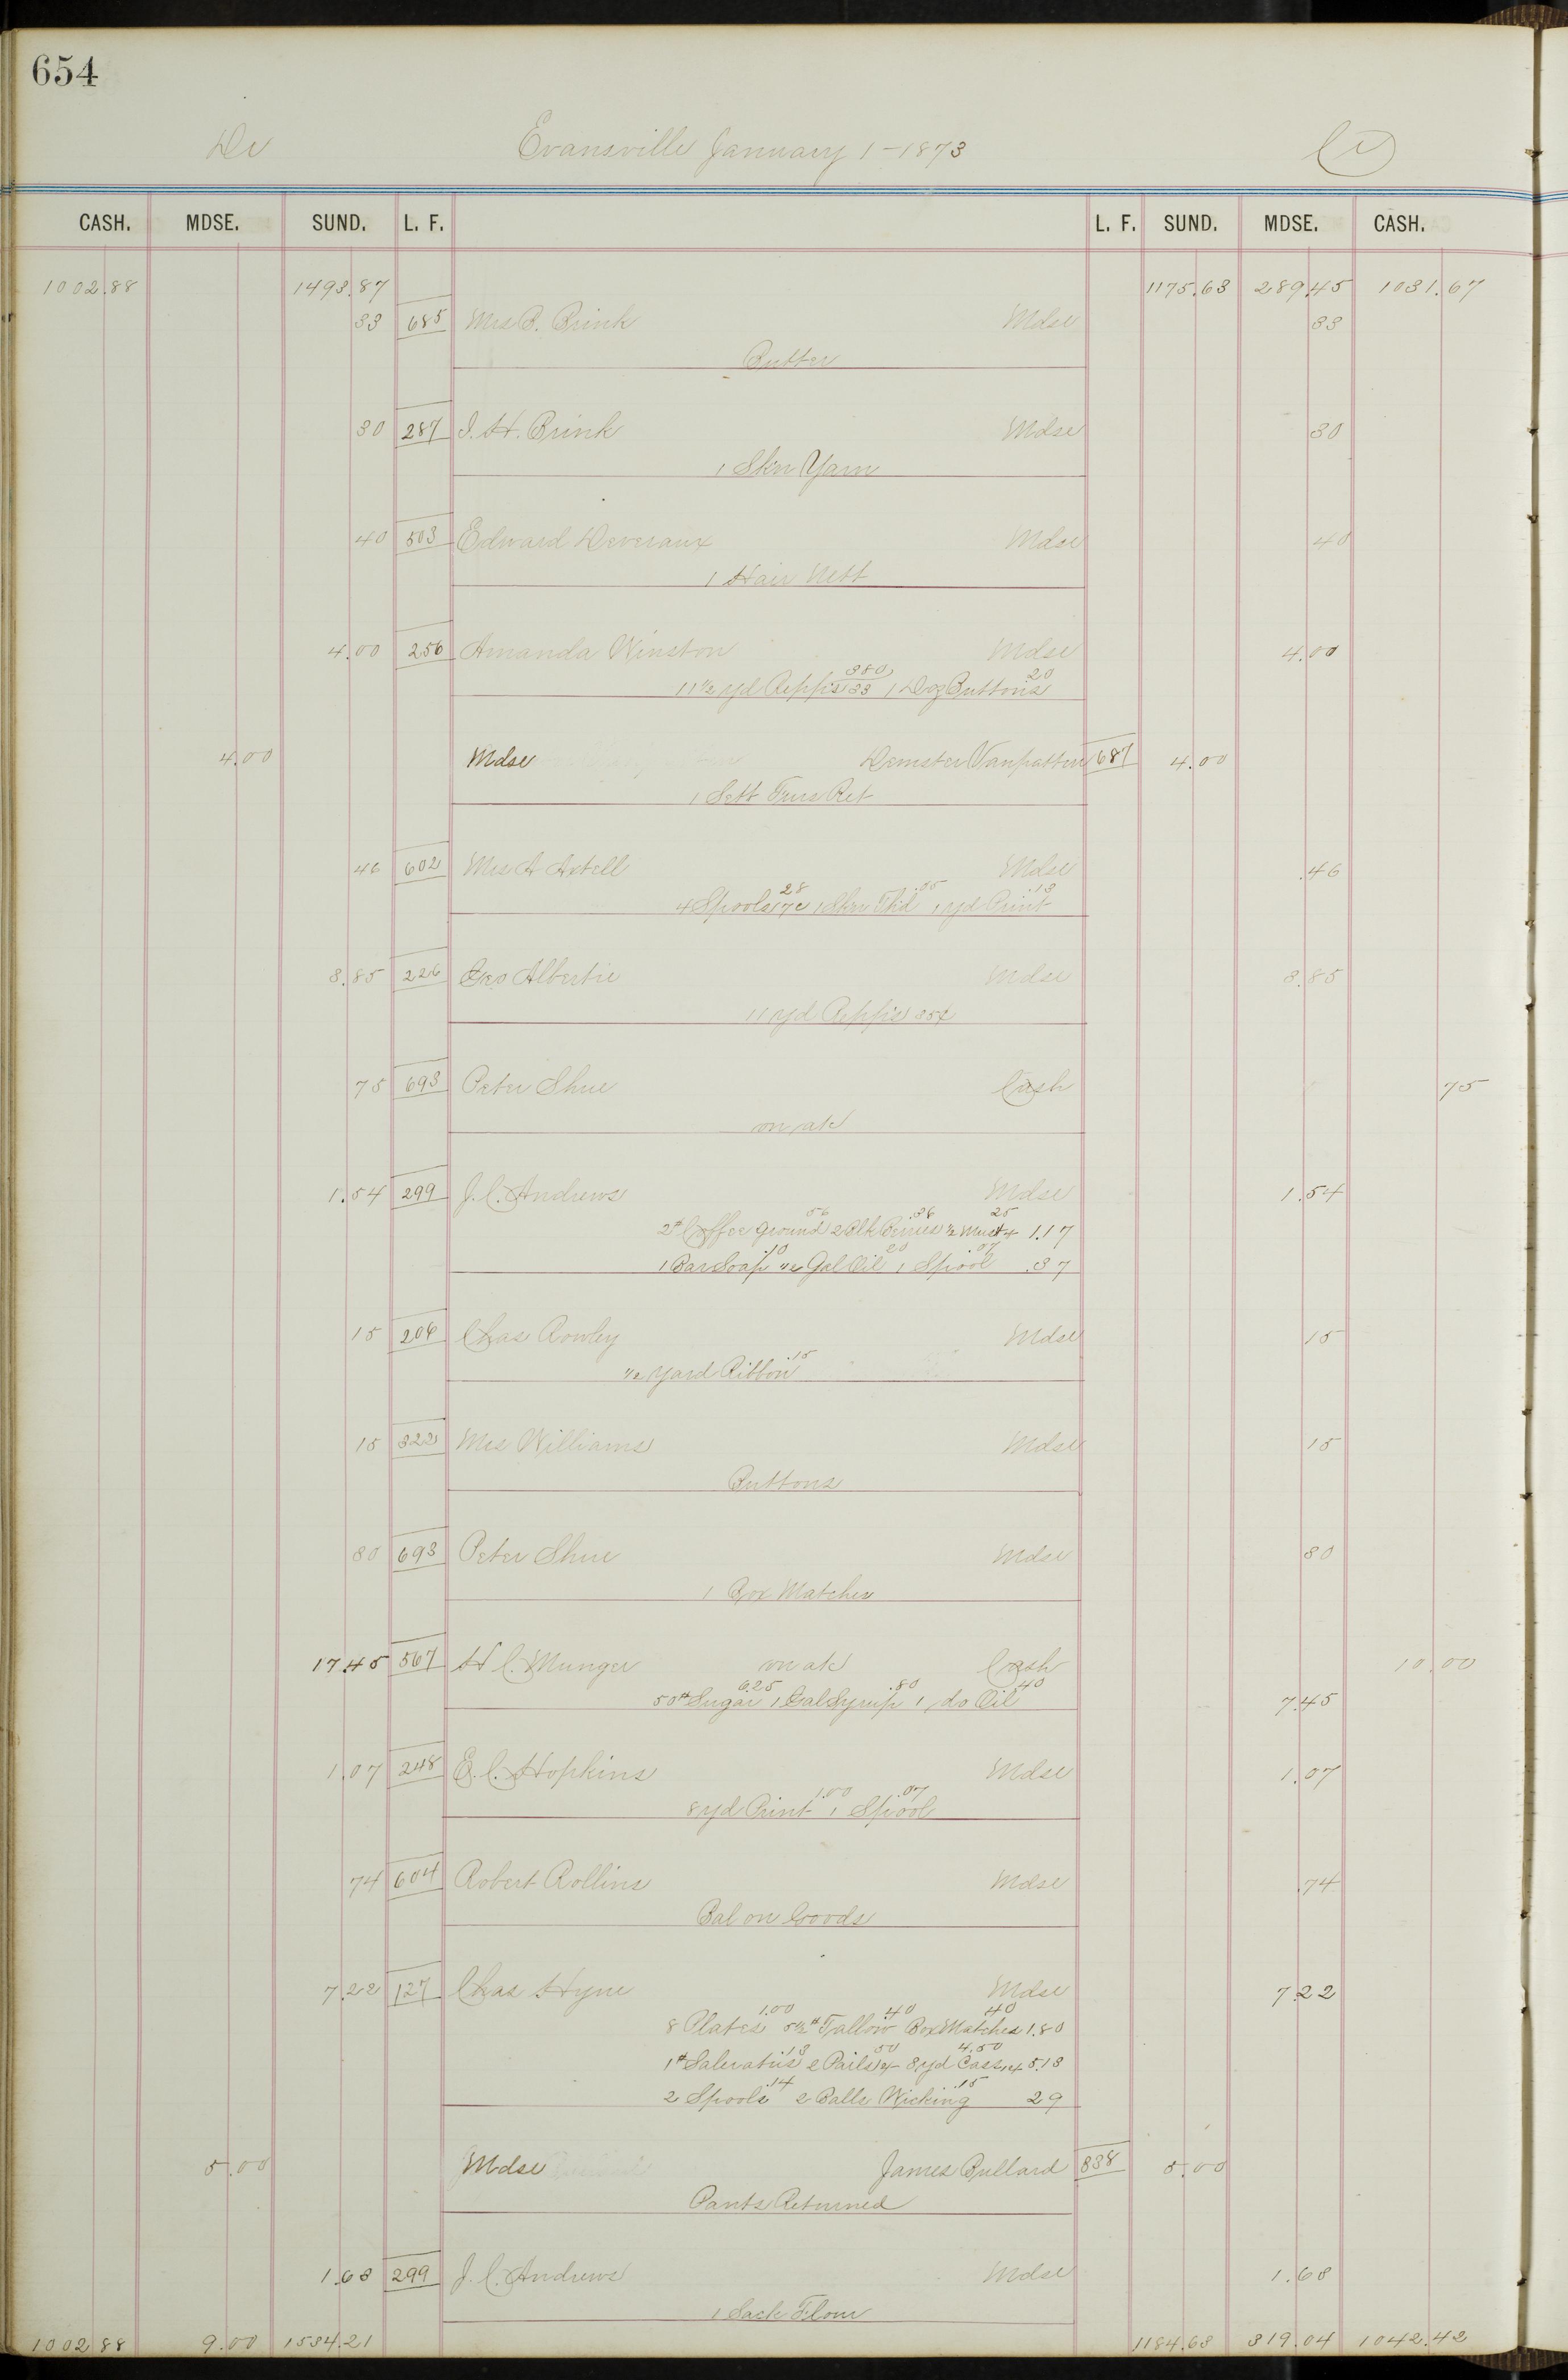 654
Dr Evansville January 1-1873 Cr
CASH. MDSE. SUND. L. F. L. F. SUND. MDSE. CASH.
1002.88 1493.87 1175.63 289.45 1031.67
33 685 Mrs B. Brink Mdse 33
Butter
30 287 J. H. Brink Mdse 30
1 Skn Yarn
40 503 Edward Deveraux Mdse 40
1 Hair Nett
4.00 256 Amanda Winston Mdse 4.00
380 20
11 1/2 yd Repps 33 1 Doz Buttons
4.00 Mdse Demster Vanpatten 687 4.00
1 Sett Furs Ret
46 602 Mrs A Axtell Mdse .46
28 .05 .13
4 Spools 7c 1 Skn Thd 1 yd Print
3.85 226 Geo Albertie Mdse 3.85
11 yd Repps 35¢
75 693 Peter Shue Cash 75
on ak
1.54 299 J. C. Andrews Mdse 1.54
56 .36 25
2# Coffee ground 2 Blk Berries 1/2 Must 4 1.17
.10 20 .07
1 Bar Soap 1/2 Gal Oil 1 Spool .37
15 206 Chas Rowley Mdse 15
.15
1/2 Yard Ribbon
15 322 Mrs Williams Mdse 15
Buttons
30 693 Peter Shue Mdse 30
1 Box Matches
17.45 567 H C. Munger on ak Cash 10.00
6.25 .80 40
50# Sugar 1 Gal Syrup 1 do Oil 7.45
1.07 248 E. C. Hopkins Mdse 1.07
1.00 .07
8 yd Print 1 Spool
74 604 Robert Rollins Mdse .74
Bal on Goods
7.22 127 Chas Hyne Mdse 7.22
1.00 .40 40
8 Plates 5 1/2# Tallow Box Matches 1.80
.13 50 4.50
1# Saleratus 2 Pails 4 3 yd Cass 14 5.13
.14 .15
2 Spools 2 Balls Wicking 29
5.00 Mdse James Bullard 338 5.00
Pants Returned
1.63 299 J. C. Andrews Mdse 1.63
1 Sack Flour
1002.88 9.00 1534.21 1184.63 319.04 1042.42